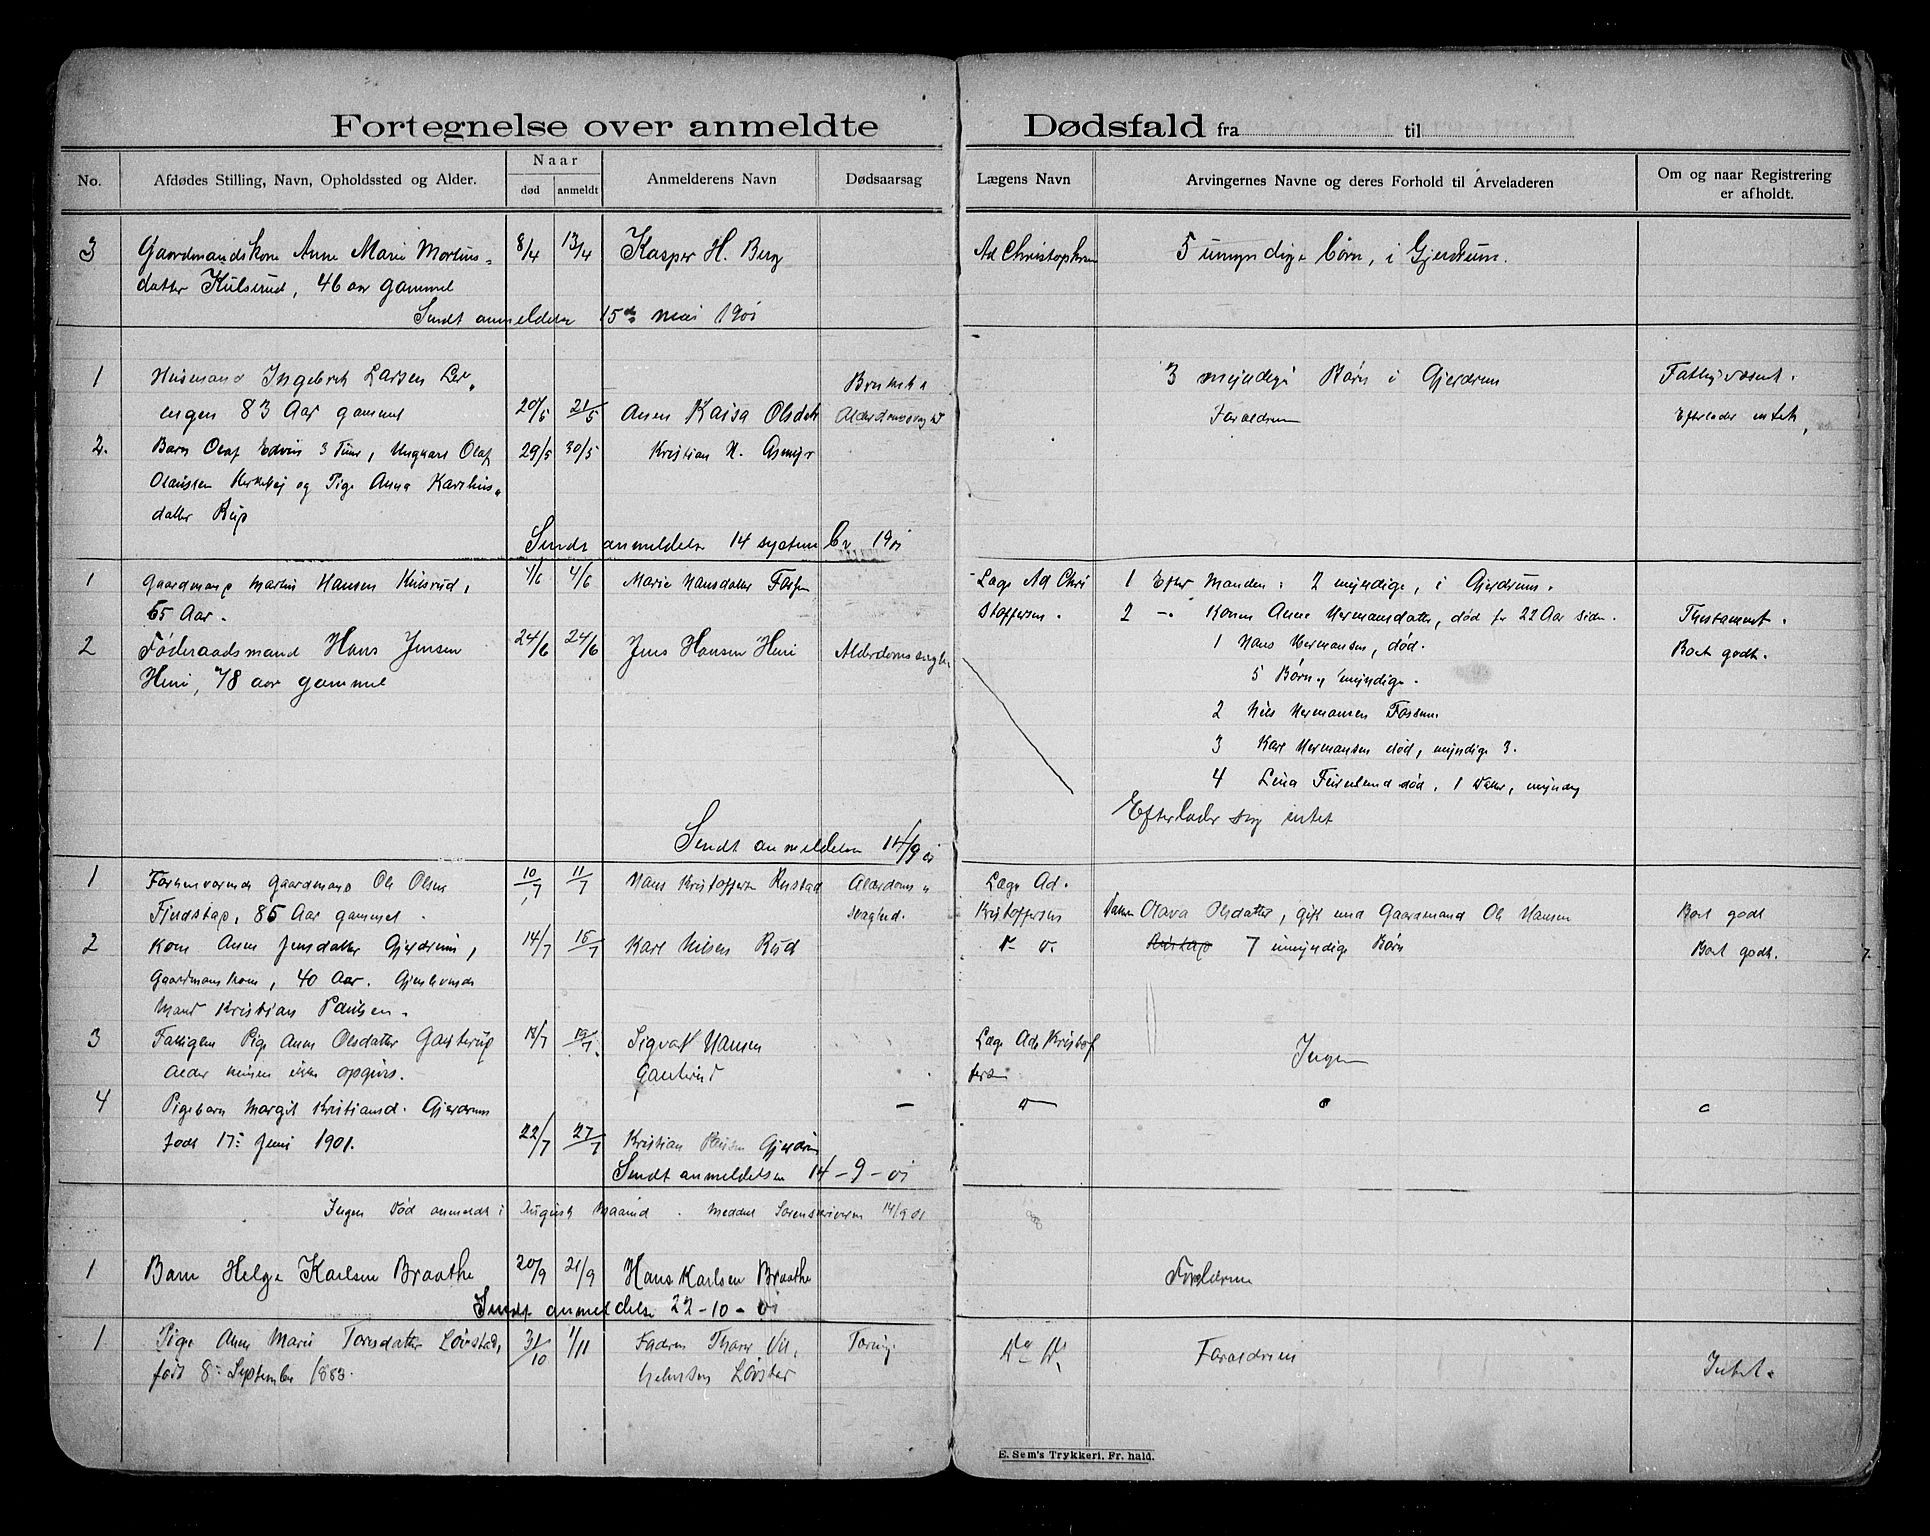 Fortegnelse over anmeldte Dødsfald fra til
No.
Afdødes Stilling, Navn, Opholdssted og Alder.
Naar
død
anmeldt
Anmelderens Navn
Dødsaarsag
Lægens Navn
Arvingernes Navne og deres Forhold til Arveladeren
Om og naar Registrering
er afholdt.
3 Gaardmandskone Anne Marie Mortins- 8/4 13/4 Kasper H. Berg Ad Christophersen 5 umyndige börn, i Gjerdrum.
datter Kulsrud, 46 aar gammel
Sendt anmeldelse 15de mai 1901
1 Husmand Ingebrik Larsen 3 myndige Børn i Gjerdrum
engen 83 Aar gammel 20/5 21/5 Anen Kaisa Olsdatt Alderdomssvaghed Forældrene Efterlader intet
2. Barn Olaf Edvin 3 Timer, Ungkarl Olaf 29/5 30/5 Kristian N. Asmyr
Olaussen og Pige Anna Karelius-
datter
Sendt anmeldelse 14 septembr 1901
1 Gaardmand Martin Hansen Kulsrud, 4/6 4/6 Marie Hansdatter Læge Ad Chri 1 Efter Manden: 2 myndige, i Gjerdrum.
65 Aar. stoffersen. 2 — Konen Anne Hermansdatter, død for 22 Aar siden. Thestament.
2 Føderaadsmand Hans Jensen 24/6 24/6 Jens Hansen Heni Alderdomssvaghed 1 Hans Hermansen, død. Bort godt.
Heni, 78 aar gammel 5 Børn, myndige.
2 Nils Hermansen Fossum
3 Karl Hermansen død, myndige 3.
4 Lina død, 1 Datter, myndig
Efterlader sig intet
Sendt anmeldelse 14/9 01
1 Forhenværende Gaardmand Ole Olsen 10/7 11/7 Hans Kristoffersen Rustad Alderdoms- Læge Ad.
Fjeldstad, 85 Aar gammel. svaghed. Kristoffersen Datter Olava Olsdatter, gift med Gaardmand Ole Hansen Bort godt
2 Kone Anne Jensdatter Gjerdrum, 14/7 15/7 Karl Nilsen Rud Rustad 7 umyndige Børn Bort godt.
Gaardmankone, 40 Aar. Gjenlevende
Mand Kristian Paulsen.
3 Fattigem Pige Anne Olsdatter Gauterud 18/7 19/7 Sigvart Hansen Læge Ad Kristof Ingen
Alder kunde ikke opgives. Gauterud fersen
4 Pigebarn Margit Kristiansd. Gjerdrum —
født 17: Juni 1901. 22/7 27/7 Kristian Paulsen Gjerdrum
Sendt anmeldelsen 14-9-01
Ingen Død anmeldt i August Maaned. Meddelt Sorenskriveren 14/9 01
1 Barn Helge Karlsen Braathe 20/9 21/9 Hans Karlsen Braathe Forældrene
Sendt anmeldelse 22-10-01
1 Pige Anne Marie Torsdatter Løvstad, 31/10 1/11 Faderen Thorer Vil- Tæring Do Do Forældrene
født 8: September 1883. helmsen Løvstad Intet.
E. Sem's Trykkeri, Fr. hald.